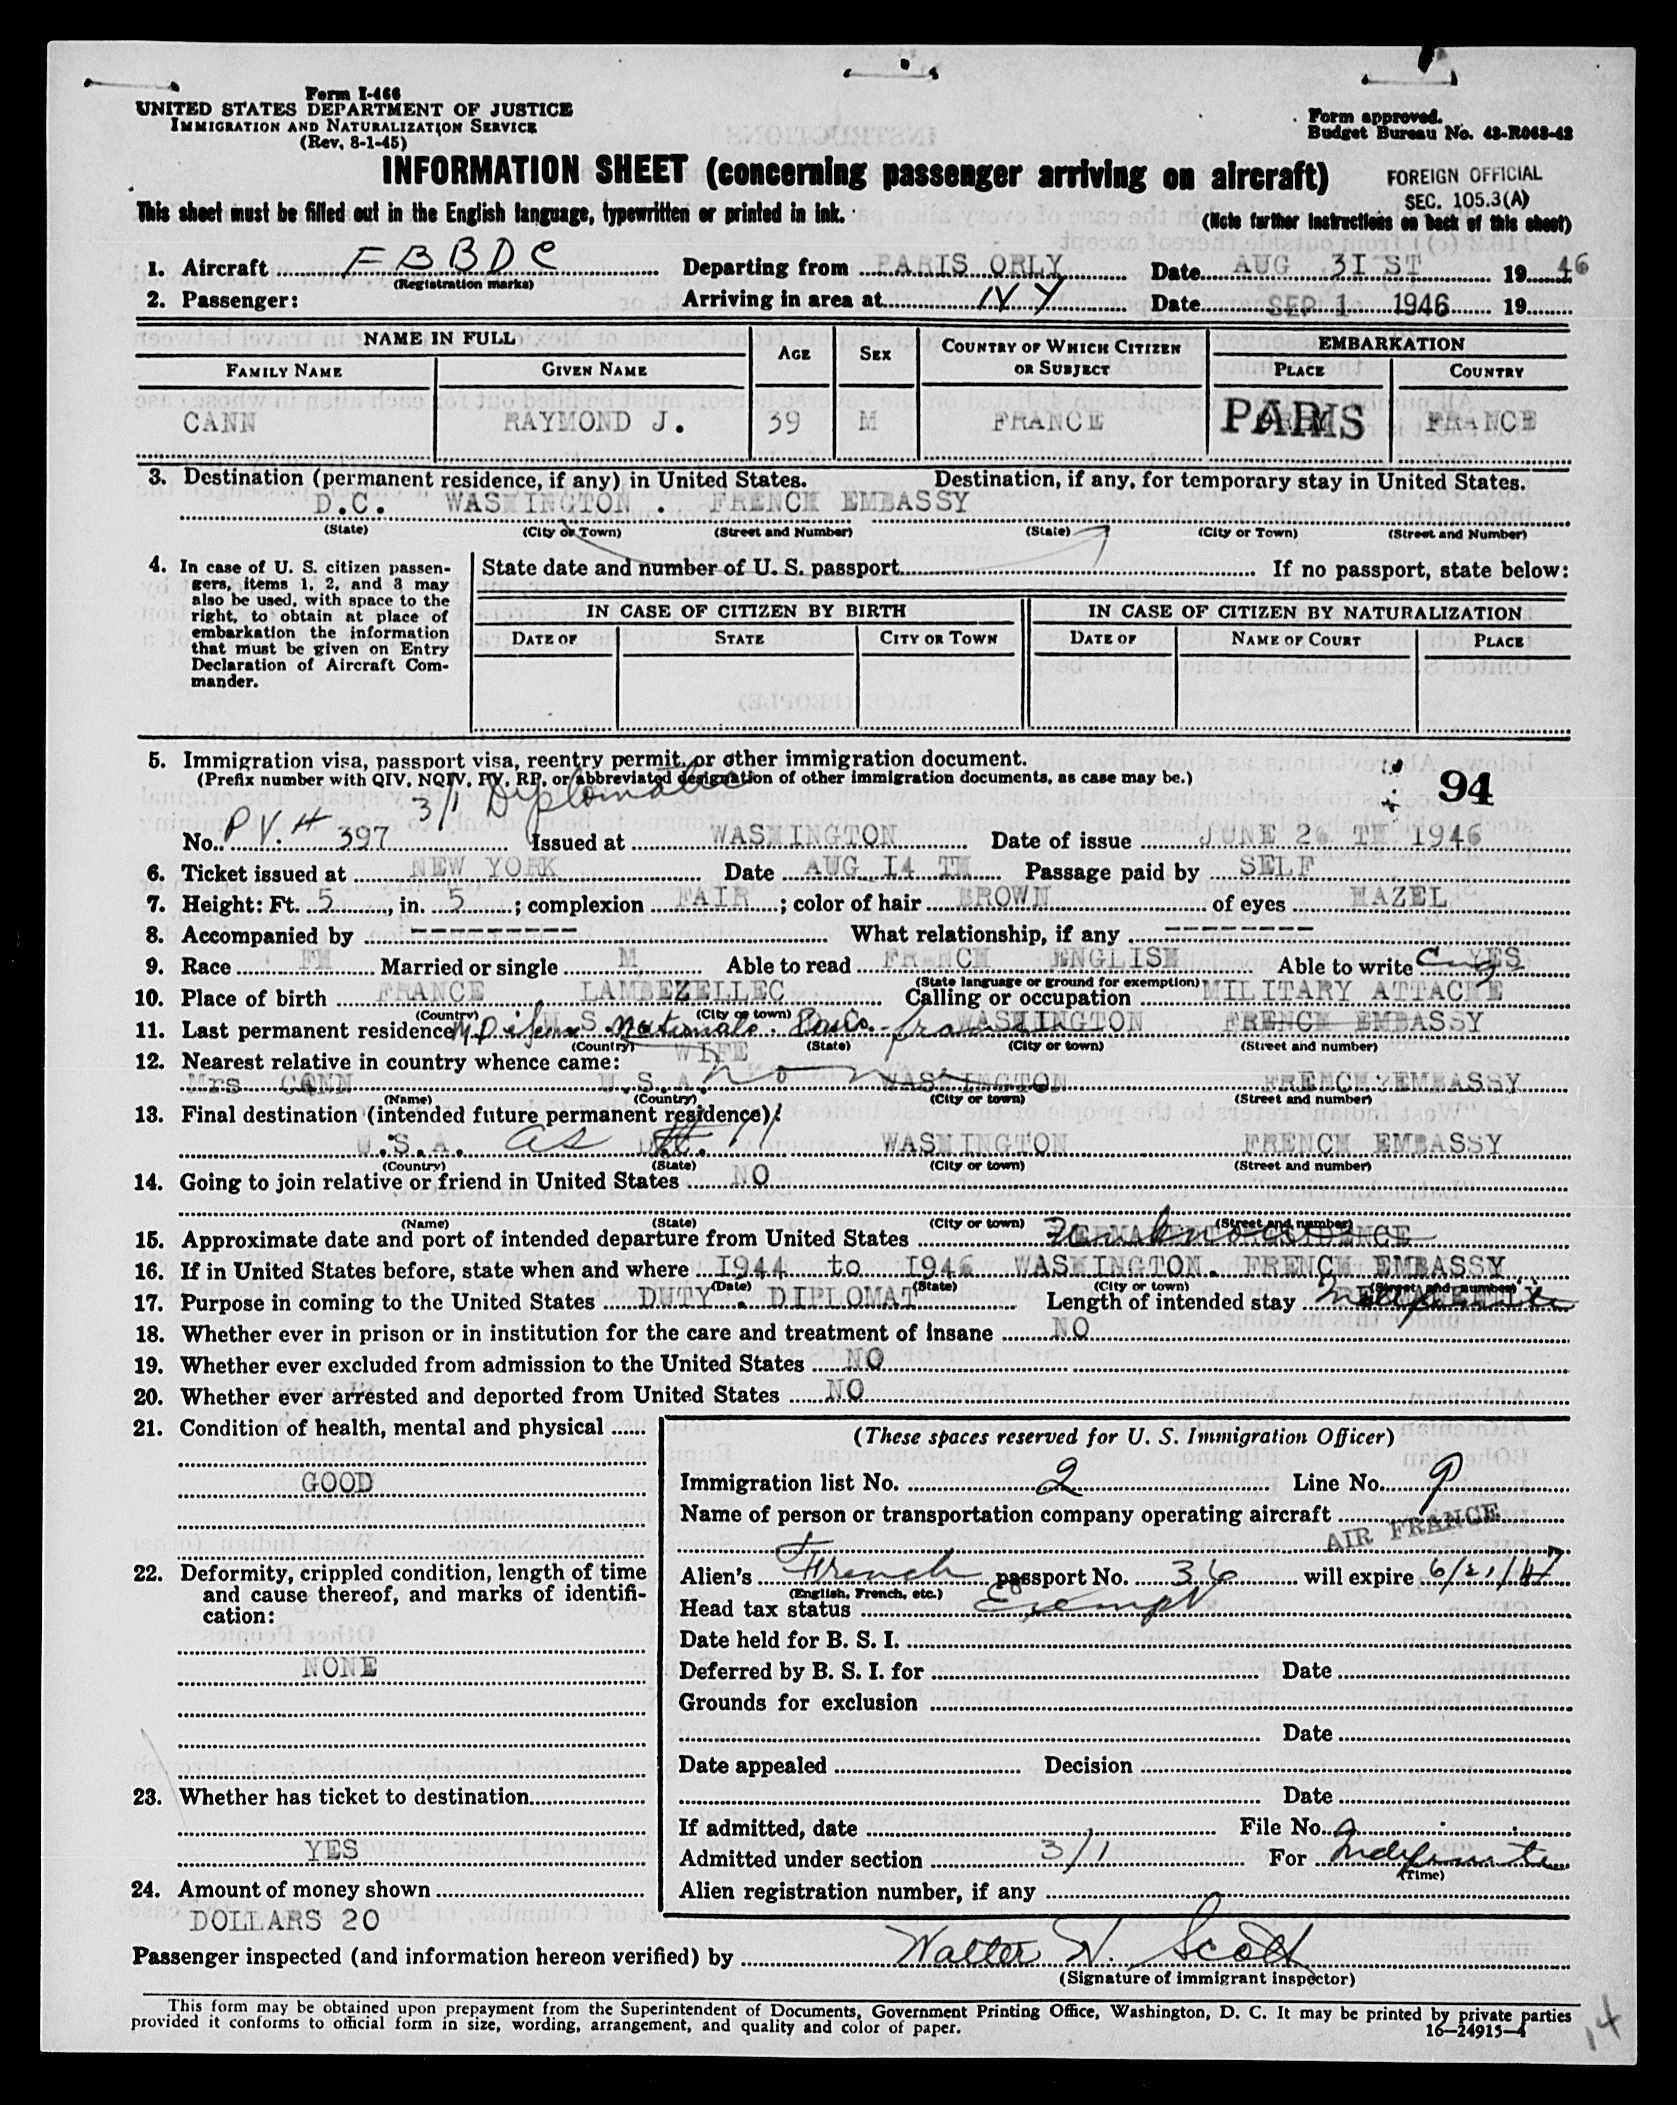 Form I-466
UNITED STATES DEPARTMENT OF JUSTICE
IMMIGRATION AND NATURALIZATION SERVICE
(Rev. 8-1-45)
Form approved.
Budget Bureau No. 43-R063-42
INFORMATION SHEET (concerning passenger arriving on aircraft)
FOREIGN OFFICIAL
SEC. 105.3(A)
This sheet must be filled out in the English language, typewritten or printed in ink.
(Note further instructions on back of this sheet)
1. Aircraft F B B D C Departing from PARIS ORLY Date AUG 3I ST 1946
(Registration marks)
2. Passenger: Arriving in area at NY Date SEP 1 1946 19
NAME IN FULL AGE SEX COUNTRY OF WHICH CITIZEN OR SUBJECT EMBARKATION
FAMILY NAME GIVEN NAME PLACE COUNTRY
CANN RAYMOND J. 39 M FRANCE PARIS FRANCE
3. Destination (permanent residence, if any) in United States. Destination, if any, for temporary stay in United States.
D.C. WASHINGTON . FRENCH EMBASSY
(State) (City or Town) (Street and Number) (State) (City or Town) (Street and Number)
4. In case of U. S. citizen passengers, items 1, 2, and 3 may also be used, with space to the right, to obtain at place of embarkation the information that must be given on Entry Declaration of Aircraft Commander.
State date and number of U. S. passport If no passport, state below:
IN CASE OF CITIZEN BY BIRTH IN CASE OF CITIZEN BY NATURALIZATION
DATE OF STATE CITY OR TOWN DATE OF NAME OF COURT PLACE
5. Immigration visa, passport visa, reentry permit, or other immigration document.
(Prefix number with QIV, NQIV, PV, RP, or abbreviated designation of other immigration documents, as case may be.)
94
3/1 Diplomatic
No. P V # 397 Issued at WASHINGTON Date of issue JUNE 26 TH 1946
6. Ticket issued at NEW YORK Date AUG I4 TH Passage paid by SELF
7. Height: Ft. 5, in. 5; complexion FAIR; color of hair BROWN of eyes HAZEL
8. Accompanied by ---------- What relationship, if any ----------
9. Race FH Married or single M Able to read FRENCH ENGLISH Able to write YES
(State language or ground for exemption)
10. Place of birth FRANCE , LAMBEZELLEC Calling or occupation MILITARY ATTACHE
(Country) (City or town)
11. Last permanent residence M. Defense Nationale. Paris. France WASHINGTON FRENCH EMBASSY
(Country) (State) (City or town) (Street and number)
12. Nearest relative in country whence came: WIFE
Mrs CANN U.S.A. none WASHINGTON FRENCH EMBASSY
(Name) (Country) (City or town) (Street and number)
13. Final destination (intended future permanent residence):
U.S.A. as # 11 WASHINGTON FRENCH EMBASSY
(Country) (State) (City or town) (Street and number)
14. Going to join relative or friend in United States NO
(Name) (State) (City or town) (Street and number)
15. Approximate date and port of intended departure from United States
16. If in United States before, state when and where I944 to I946 WASHINGTON. FRENCH EMBASSY
(Date) (State) (City or town) (Street and number)
17. Purpose in coming to the United States DUTY . DIPLOMAT Length of intended stay Indefinite
18. Whether ever in prison or in institution for the care and treatment of insane NO
19. Whether ever excluded from admission to the United States NO
20. Whether ever arrested and deported from United States NO
21. Condition of health, mental and physical
GOOD
22. Deformity, crippled condition, length of time and cause thereof, and marks of identification:
NONE
23. Whether has ticket to destination
YES
24. Amount of money shown
DOLLARS 20
(These spaces reserved for U. S. Immigration Officer)
Immigration list No. 2 Line No. 9
Name of person or transportation company operating aircraft
AIR FRANCE
Alien's French passport No. 36 will expire 6/21/47
(English, French, etc.)
Head tax status Exempt
Date held for B. S. I.
Deferred by B. S. I. for Date
Grounds for exclusion
Date
Date appealed Decision
Date
If admitted, date File No.
Admitted under section 3/1 For Indefinite
(Time)
Alien registration number, if any
Passenger inspected (and information hereon verified) by Walter W. Scott
(Signature of immigrant inspector)
This form may be obtained upon prepayment from the Superintendent of Documents, Government Printing Office, Washington, D. C. It may be printed by private parties
provided it conforms to official form in size, wording, arrangement, and quality and color of paper.
16—24915-4
14